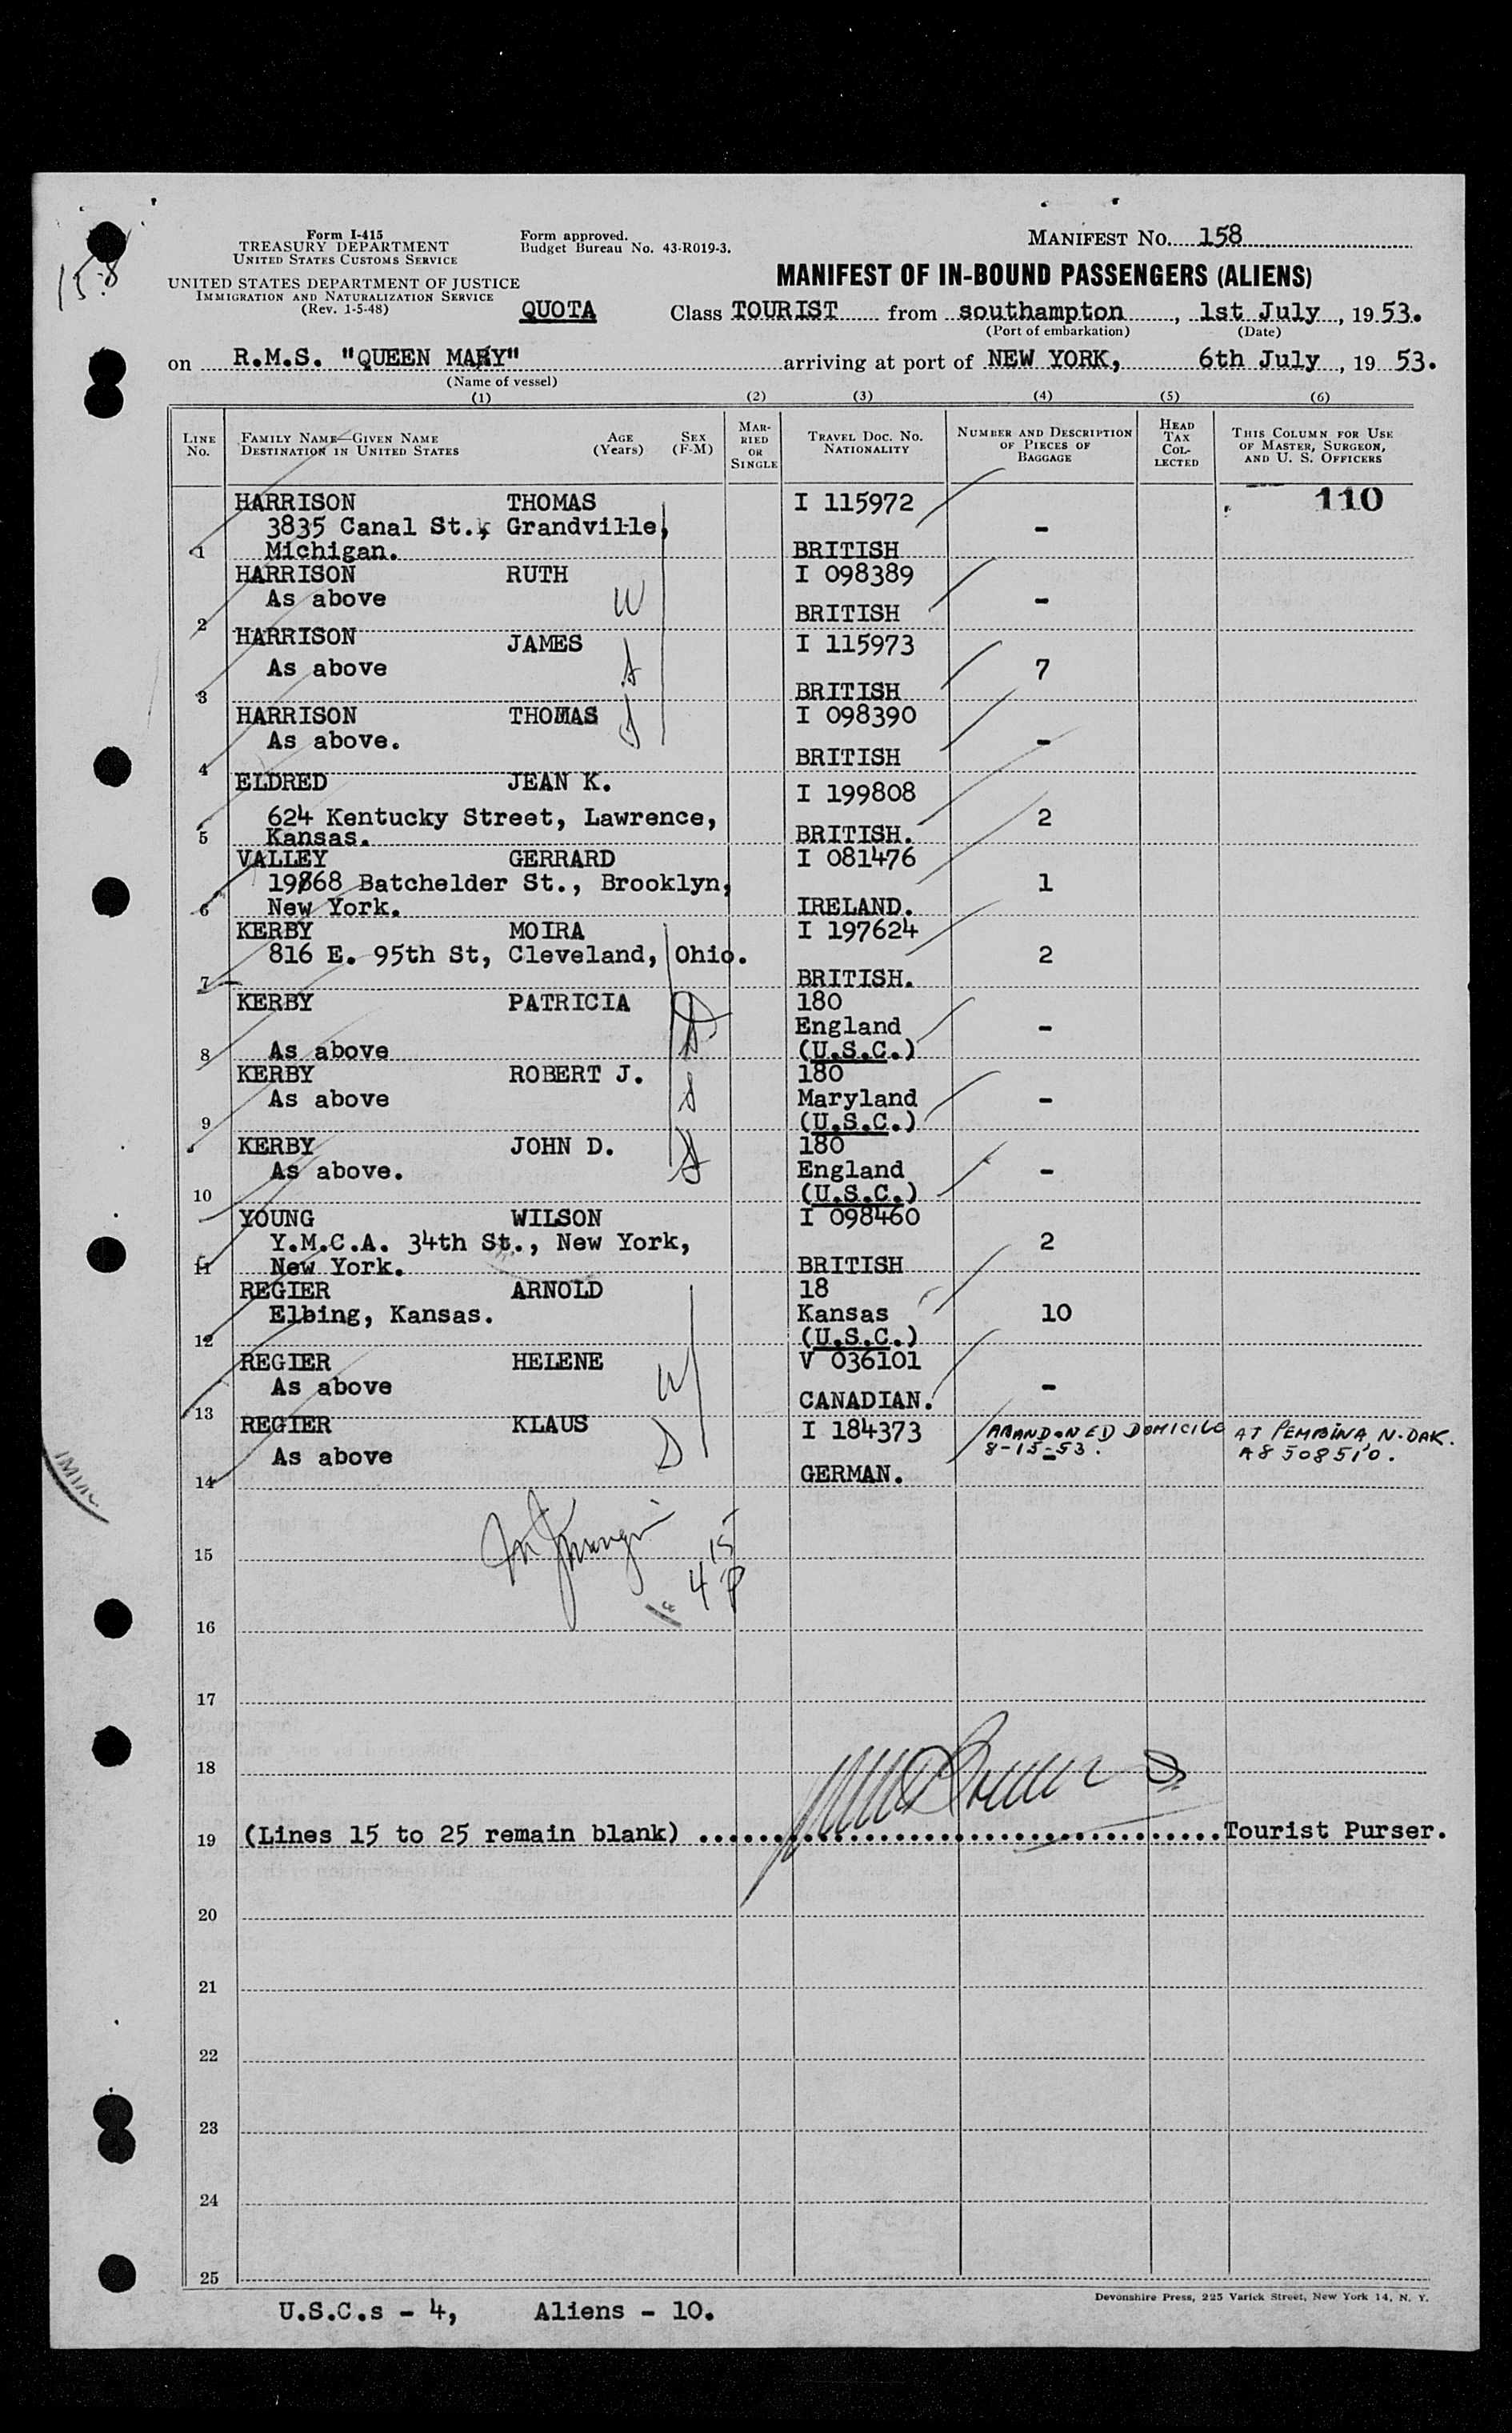 158
Form I-415
TREASURY DEPARTMENT
UNITED STATES CUSTOMS SERVICE
UNITED STATES DEPARTMENT OF JUSTICE
IMMIGRATION AND NATURALIZATION SERVICE
(Rev. 1-5-48)
Form approved.
Budget Bureau No. 43-R019-3.
MANIFEST No. 158
MANIFEST OF IN-BOUND PASSENGERS (ALIENS)
QUOTA Class TOURIST from southampton, 1st July, 19 53.
(Port of embarkation) (Date)
on R.M.S. "QUEEN MARY" arriving at port of NEW YORK, 6th July, 19 53.
(Name of vessel)
(1) (2) (3) (4) (5) (6)
LINE No.
FAMILY NAME—GIVEN NAME DESTINATION IN UNITED STATES
AGE (Years)
SEX (F-M)
MARRIED OR SINGLE
TRAVEL DOC. NO. NATIONALITY
NUMBER AND DESCRIPTION OF PIECES OF BAGGAGE
HEAD TAX COLLECTED
THIS COLUMN FOR USE OF MASTER, SURGEON, AND U. S. OFFICERS
HARRISON THOMAS I 115972 110
3835 Canal St., Grandville, -
1 Michigan. BRITISH
HARRISON RUTH I 098389
As above W -
2 BRITISH
HARRISON JAMES I 115973
As above 7
3 BRITISH
HARRISON THOMAS I 098390
As above. -
4 BRITISH
ELDRED JEAN K. I 199808
624 Kentucky Street, Lawrence, 2
5 Kansas. BRITISH.
VALLEY GERRARD I 081476
19868 Batchelder St., Brooklyn, 1
6 New York. IRELAND.
KERBY MOIRA I 197624
816 E. 95th St, Cleveland, Ohio. 2
7 BRITISH.
KERBY PATRICIA 180
England -
8 As above (U.S.C.)
KERBY ROBERT J. 180
As above Maryland -
9 (U.S.C.)
KERBY JOHN D. 180
As above. England -
10 (U.S.C.)
YOUNG WILSON I 098460
Y.M.C.A. 34th St., New York, 2
11 New York. BRITISH
REGIER ARNOLD 18
Elbing, Kansas. Kansas 10
12 (U.S.C.)
REGIER HELENE V 036101
As above W -
13 CANADIAN.
REGIER KLAUS I 184373 ABANDONED DOMICILE AT PEMBINA N. DAK.
As above 8-15-53. A8 508510.
14 GERMAN. -
IMMC
15
4 15 P
16
17
18
19 (Lines 15 to 25 remain blank) ................................... Tourist Purser.
20
21
22
23
24
25
U.S.C.s - 4, Aliens - 10.
Devonshire Press, 225 Varick Street, New York 14, N. Y.